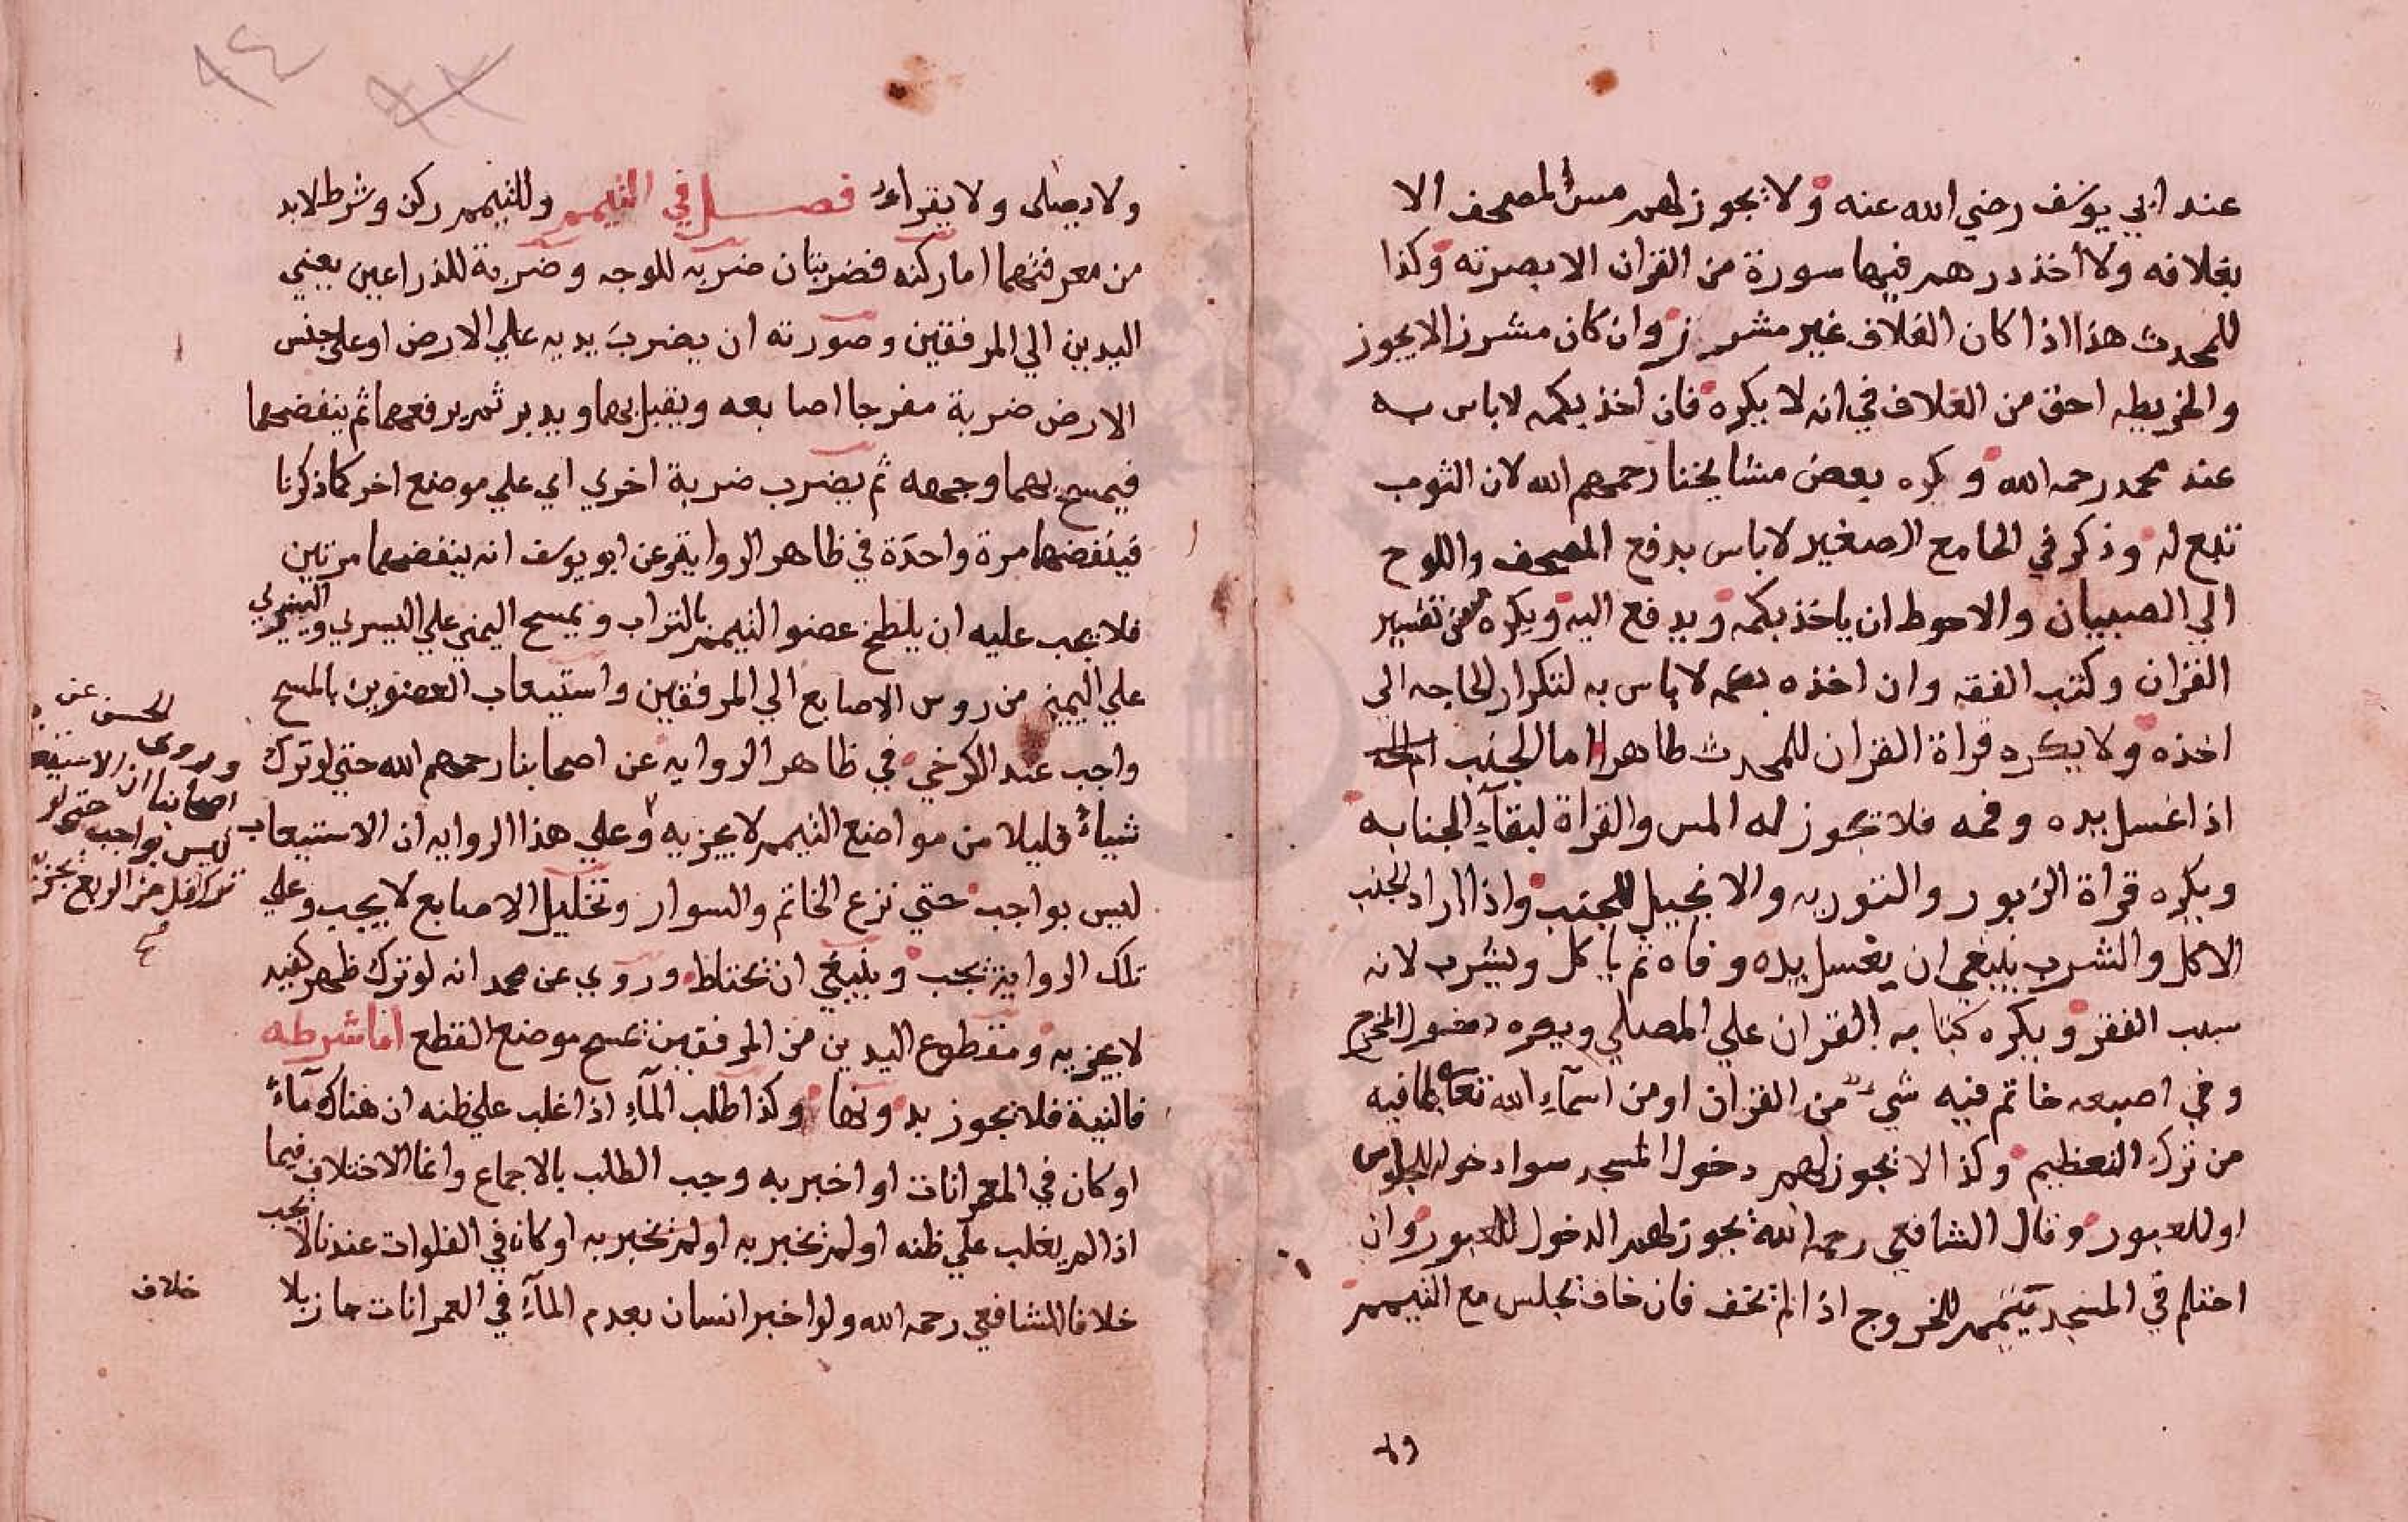 عند ابي يوسف رضي الله عنه ولا يجوز لهم مس المصحف الا
بغلافه ولا أخذ درهم فيها سورة من القران الا بصرته وكذا
للمحدث هذا اذا كان الغلاف غير مشرز وان كان مشرزا لا يجوز
والخريطه احق من الغلاف في انه لا يكره فان اخذ بكمه لا باس به
عند محمد رحمه الله وبكره بعض مشايخنا رحمهم الله لان الثوب
تبع له وذكر في الجامع الصغير لا باس بدفع المصحف واللوح
الي الصبيان والاحوط ان ياخذ بكمه ويدفع اليه ويكره مس تفسير
القران وكتب الفقه وان اخذه بكمه لا باس به لتكرار الحاجه الي
اخذه ولا يكره قراة القران للمحدث طاهرا اما الجنب
اذا غسل يده وفمه فلا تجوز له المس والقراة لبقآء الجنابه
ويكره قراة الزبور والتوريه والانجيل للجنب واذا اراد الجنب
الاكل والشرب ينبغي ان يغسل يده وفاه ثم ياكل ويشرب لانه
سبب الفقر ويكره كتابه القران علي المصلي ويكره دخول المخرج
وفي اصبعه خاتم فيه شي من القران او من اسمآء الله تعا لما فيه
من ترك التعظيم وكذا لا يجوز لهم دخول المسجد سوا دخول للجلوس
او للعبور وقال الشافعي رحمه الله يجوز لهم الدخول للعبور وان
احتلم في المسجد يتيمم للخروج اذا لم يخف فان خاف يجلس مع التيمم
ولا
١٤
ولا يصلى ولا يقراء فصل في التيمم وللتيمم ركن وشرط لا بد
من معرفتهما اما ركنه فضربتان ضربه للوجه وضربة للذراعين يعني
اليدين الي المرفقين وصورته ان يضرب يديه علي الارض او علي جنس
الارض ضربة مفرجا اصابعه ويقبل بهما ويدبر ثم يرفعهما ثم ينفضهما
فيمسح بهما وجهه ثم يضرب ضربة اخري اي علي موضع اخر كما ذكرنا
فينفضهما مرة واحدة في ظاهر الرواية وعن ابو يوسف انه ينفضهما مرتين
فلا يجب عليه ان يلطخ عضو التيمم بالتراب ويمسح اليمني علي اليسري واليسري
علي اليمني من روس الاصابع الي المرفقين واستيعاب العضوين بالمسح
واجب عند الكرخي في ظاهر الروايه عن اصحابنا رحمهم الله حتي لو ترك
شياء قليلا من مواضع التيمم لا يجزيه وعلي هذا الروايه ان الاستيعاب
ليس بواجب حتي نزع الخاتم والسوار وتخليل الاصابع لا يجب وعلي
تلك الرواية يجب وينبغي ان يحتاط وروي عن محمد انه لو ترك ظهر كفيه
لا يجزيه ومقطوع اليدين من المرفقين يمسح موضع القطع اما شرطه
فالنية فلا يجوز بدونها وكذا طلب المآء اذا غلب علي ظنه ان هناك مآء
او كان في العمرانات او اخبر به وجب الطلب بالاجماع وانما الاختلاف فيما
اذا لم يغلب علي ظنه او لم يخبر به او لم يخبر به او كان في الفلوات عندنا لا يجب
خلافا للشافعي رحمه الله ولو اخبر انسان بعدم المآء في العمرانات جاز بلا
وروي الحسن عن
اصحابنا ان الاستيعاب
ليس بواجب حتي لو
ترك اقل من الربع يجزيه
خلاف